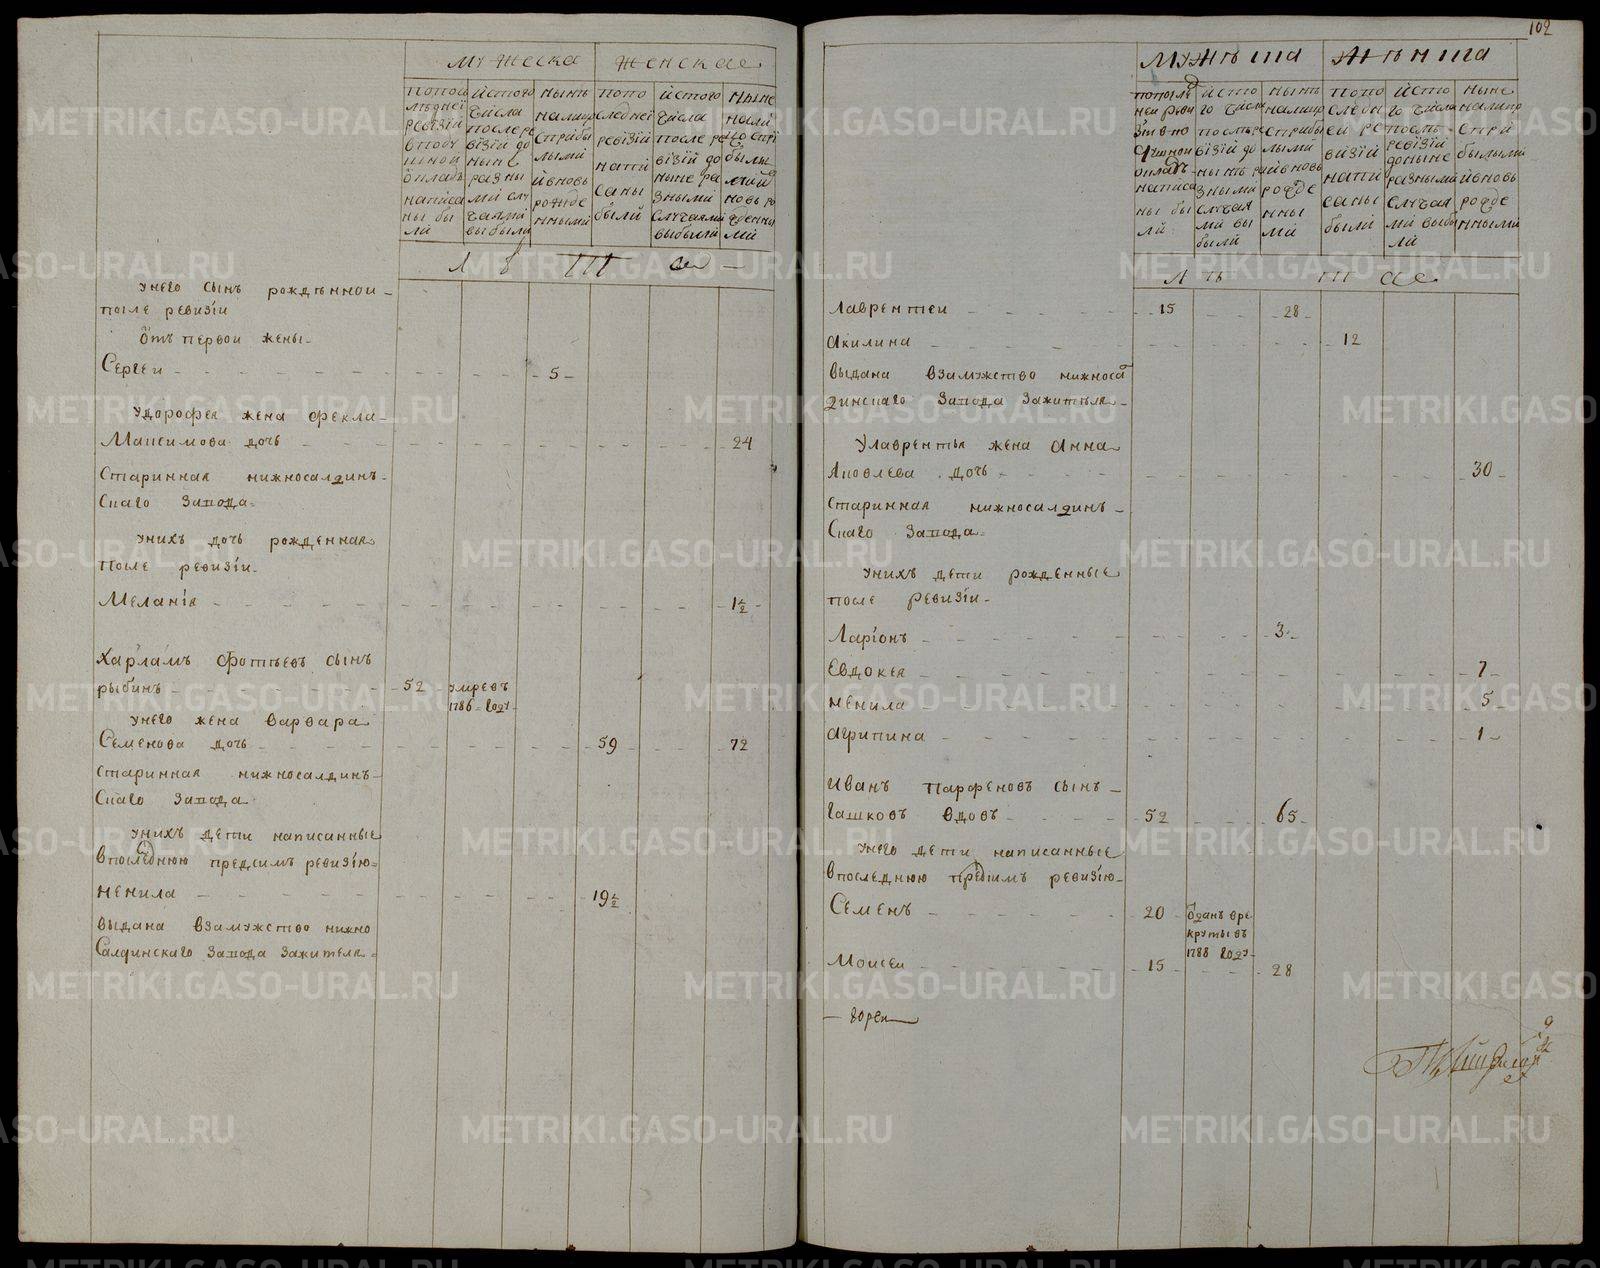 мужеска женска
попослѣднеи ревизіи вподушнои окладъ написаны были
ис того числа после ревизіи до ныне разными случаями выбыли
нынѣ налицо сприбылыми и вновь рожденными
попоследнеи ревизіи написаны были
ис того числа после ревизіи до ныне разными случаями выбыли
ныне налицо сприбылыми и вновь рожденными
Лѣта
унего сынъ рожденнои
после ревизіи
отъ первои жены
Сергеи 5
Удорофея жена фекла
Максимова дочь 24
Старинная нижносалдин
скаго завода
унихъ дочь рожденная
После ревизіи
Меланія 1½
Харламъ фотѣевъ сынъ
рыбинъ 52 умревъ
1786 году
унего жена варвара
Семенова дочь 59 72
Старинная нижносалдинъ
скаго завода
унихъ дети написанные
впоследнюю предсимъ ревизію
ненила 19½
выдана взамужство нижно
Салдинскаго завода зажителя
102
мужѣска женска
попоследнеи ревизіи вподушнои окладъ написаны были
исто го числа послѣ ревизіи до нынѣ разными случаями выбыли
нынѣ налицо сприбылыми ивновь рожденными
попоследнеи ревизіи написаны были
исто го числа послѣ ревизіи доныне разными случаями выбыли
ныне налицо сприбылыми ивновь рожденными
Лѣта
Лаврентеи 15 28
Акилина 12
выдана взамужство нижноса
динскаго завода зажителя
Улаврентья жена Анна
Яковлева дочь 30
Старинная нижносалдинъ
Скаго завода
унихъ дети рожденные
после ревизіи
Ларіонъ 3
Евдокея 7
ненила 5
Агрипина 1
Иванъ Парфеновъ сынъ
Гашковъ вдовъ 52 65
унего дети написанные
впоследнюю предсимъ ревизію
Семенъ 20 отданъ вре
круты въ
1788 году
Моисеи 15 28
METRIKI.GASO-URAL.RU